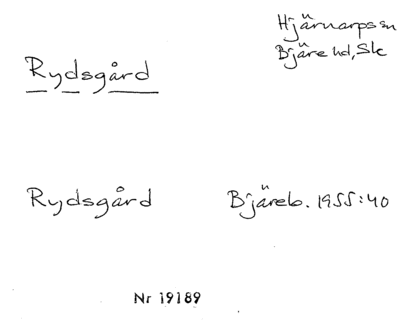 Hjärnarps sn
Bjäre hd, Sk
Rydsgård
Rydsgård Bjäreb. 1955:40
Nr 19189